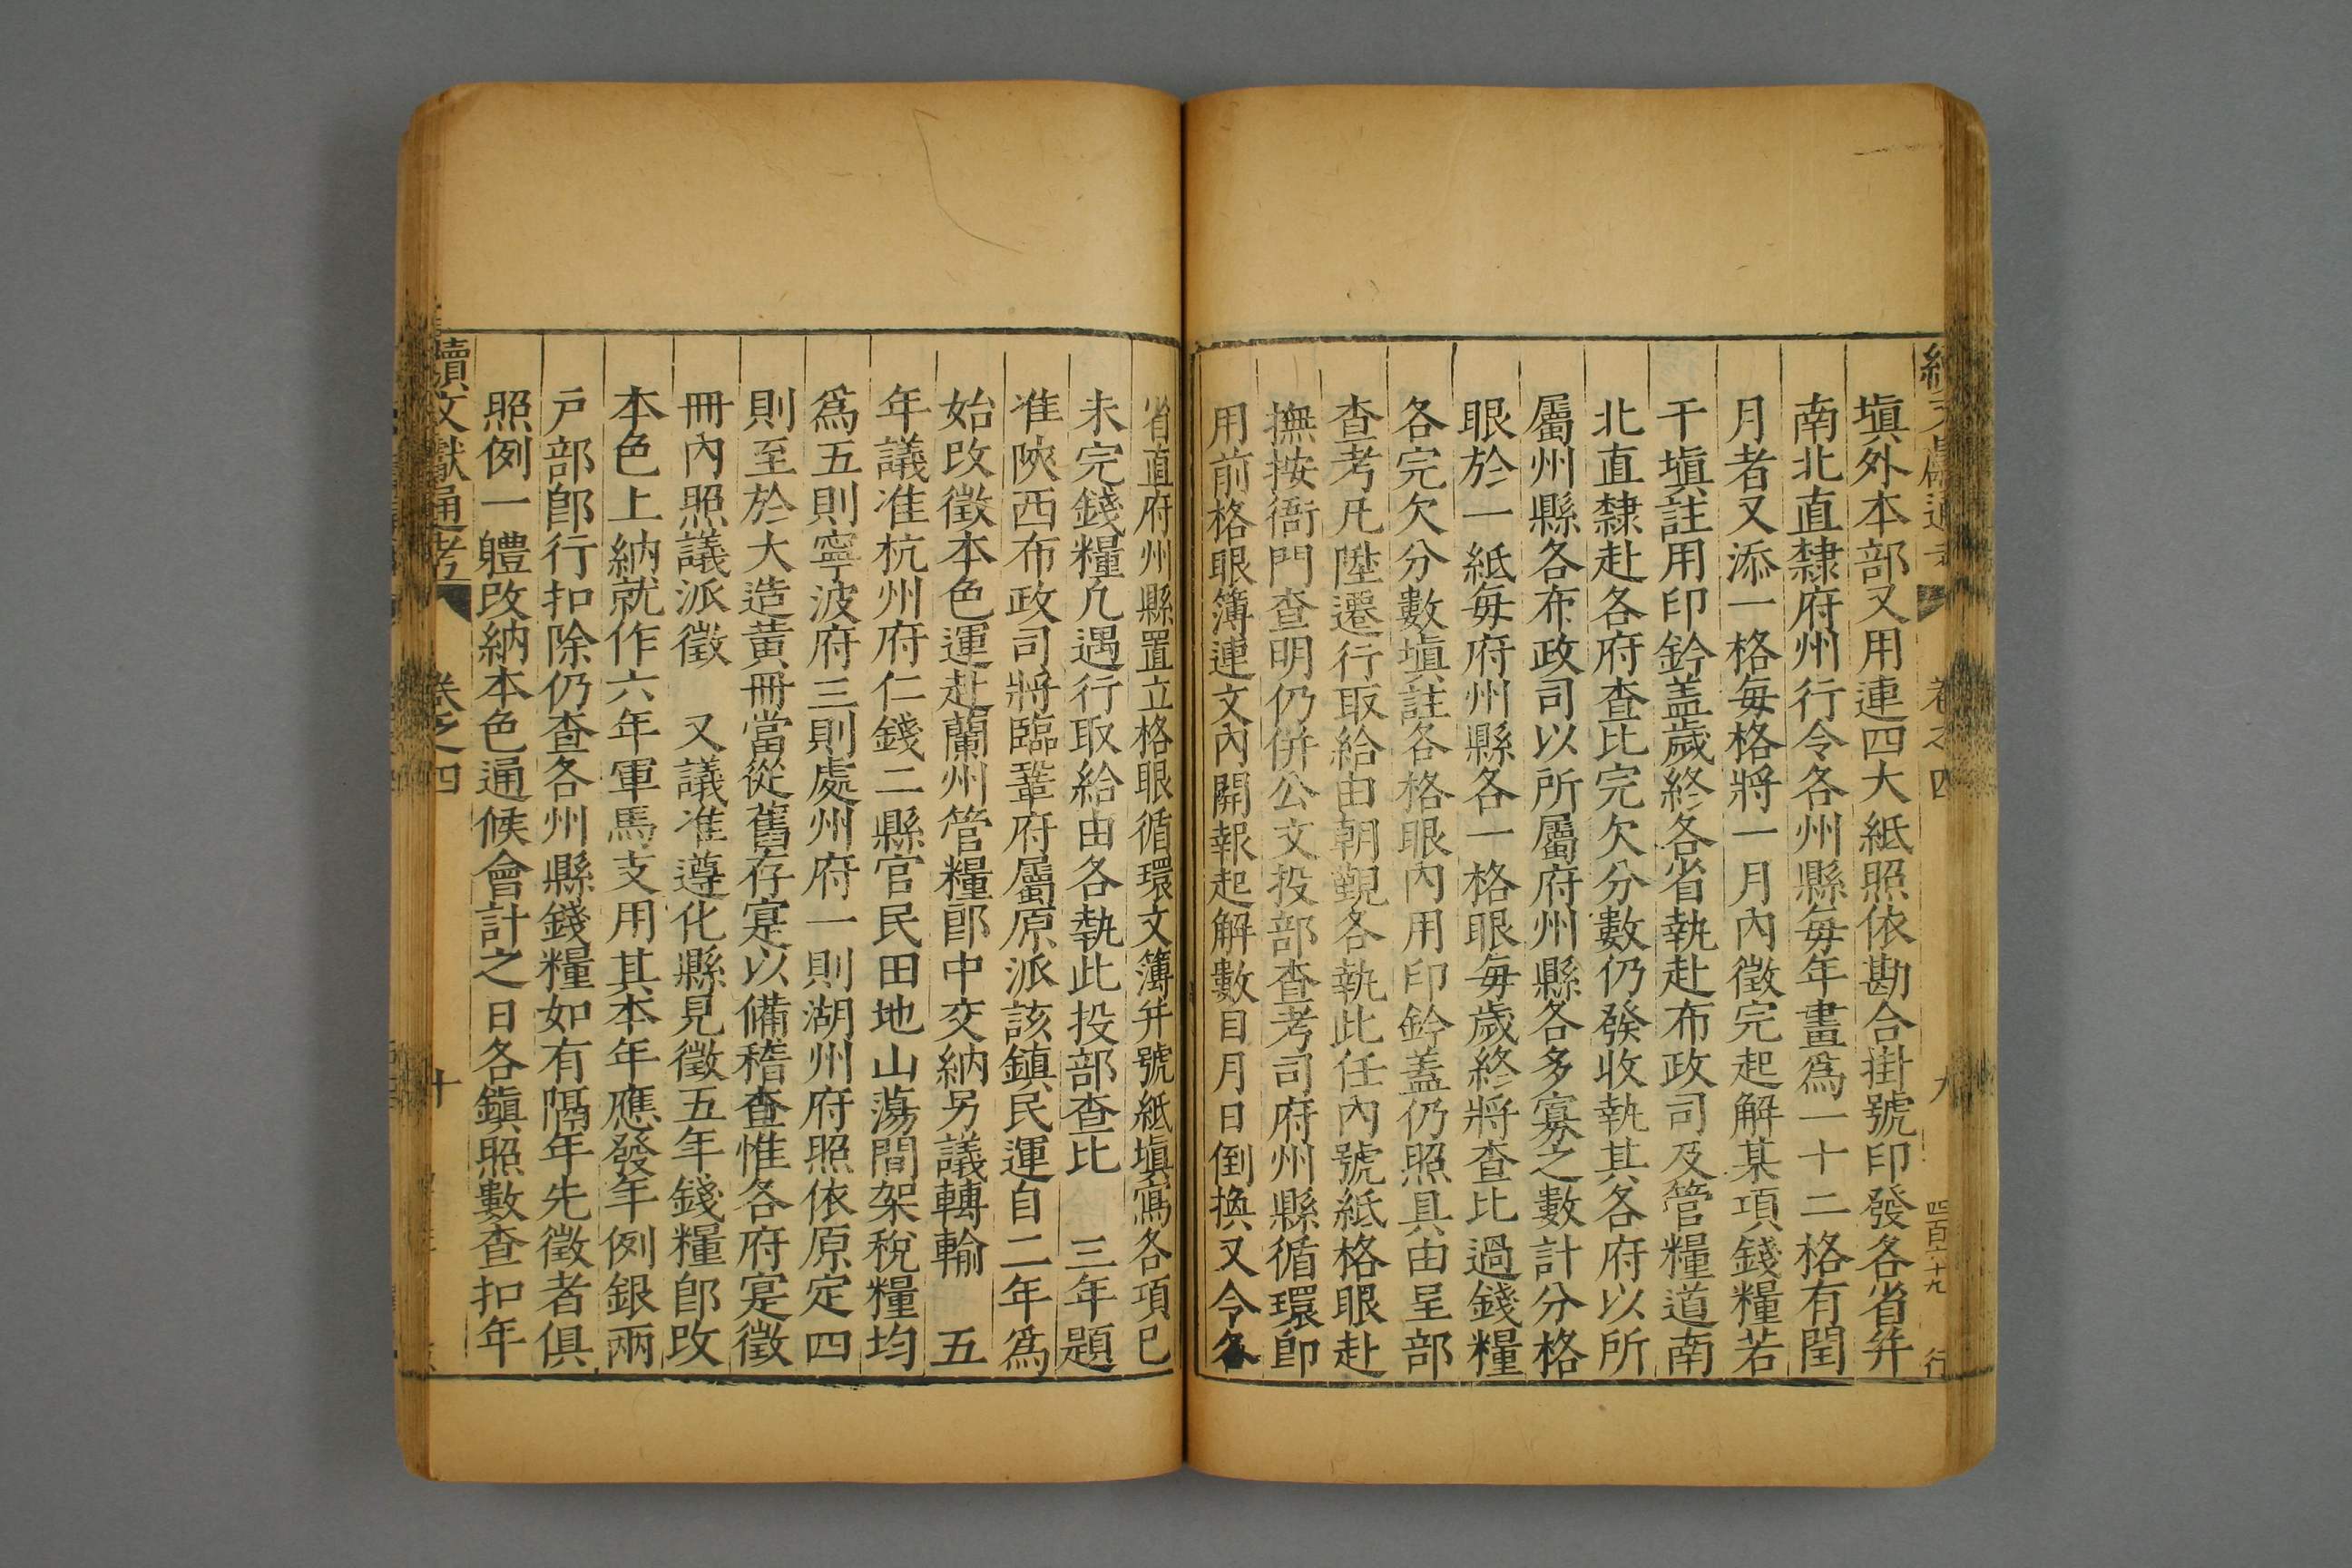 塡外本部又用連四大紙照依勘合掛號印發各省并
南北直隸府州行令各州縣每年畫爲一十二格有閏
月者又添一格每格將一月內徵完起解某項錢糧若
干塡註用印鈐盖歲終各省執赴布政司及管糧道南
北直隸赴各府查比完欠分數仍發收執其各府以所
屬州縣各布政司以所屬府州縣各多寡之數計分格
眼於一紙每府州縣各一格眼每歲終將查比過錢糧
各完欠分數塡註各格眼內用印鈐蓋仍照具由呈部
查考凡陞遷行取給由朝覲各執此任內號紙格眼赴
撫按衙門查明仍併公文投部查考司府州縣循環卽
用前格眼簿連文內開報起解數目月日倒換又令各
省直府州縣置立格眼循環文簿并號紙塡寫各項已
未完錢糧凡遇行取給由各執此投部查比 三年題
准陝西布政司將臨鞏府屬原派該鎮民運自二年爲
始改徵本色運赴蘭州管糧郎中交納另議轉輸 五
年議准杭州府仁錢二縣官民田地山蕩間架稅糧均
爲五則寧波府三則處州府一則湖州府照依原定四
則至於大造黃冊當從舊存寔以備稽查惟各府寔徵
冊內照議派徵 又議准遵化縣見徵五年錢糧卽改
本色上納就作六年軍馬支用其本年應發年例銀兩
戶部卽行扣除仍查各州縣錢糧如有隔年先徵者俱
照例一體改納本色通候會計之日各鎮照數查扣年
續文獻通考 卷之四 十